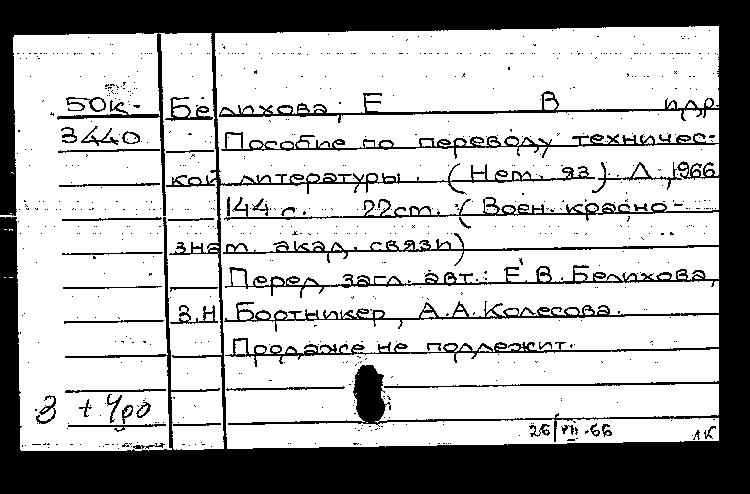 50к- Белихова, Е В и др.
3440 Пособие по переводу техничес-
кой литературы. (Нем. яз) Л, 1966
144 с. 22cm. (Воен. красно-
знам. акад. связи)
Перед загл. авт.: Е.В. Белихова,
З.Н. Бортникер, А.А. Колесова.
Продаже не подлежит.
8 +
26/VII-66